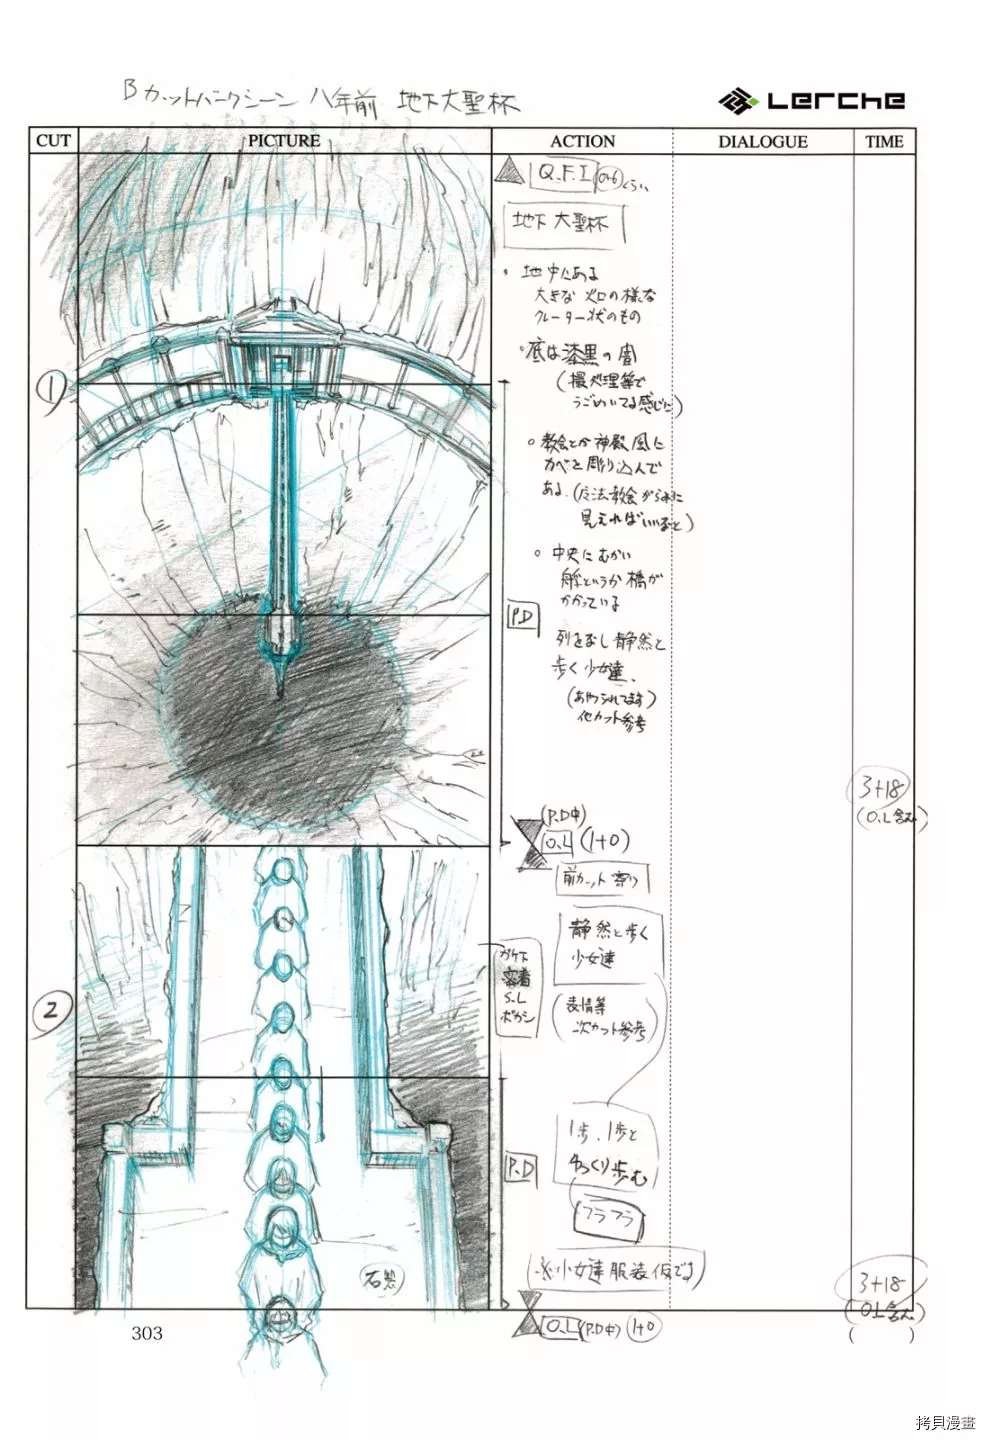 Bカットバンクシーン 八年前 地下大聖杯
Lerche
CUT PICTURE ACTION DIALOGUE TIME
Q.F.I (0.6)くらい
地下 大聖杯
・地中にある
大きな火口の様な
クレーター状のもの
・底は漆黒の闇
(撮処理等で
うごめいてる感じに)
①
・教会とか神殿風に
カベを彫り込んで
ある。
見えればいいなと)
・中央にむかい
橋が
かかっている
P.D
列をなし静然と
歩く少女達、
(あやつられてます)
他カット参考
3+18
(O.L含み)
(P.D中)
O.L (1+0)
前カット寄り
静然と歩く
少女達
(表情等
次カット参考)
ガケ下
密着
S.L
ボカシ
②
1歩、1歩と
ゆっくり歩む
P.D
フラフラ
※少女達服装仮です
3+18
(O.L含み)
O.L (P.D中) 1+0
303
( )
拷貝漫畫